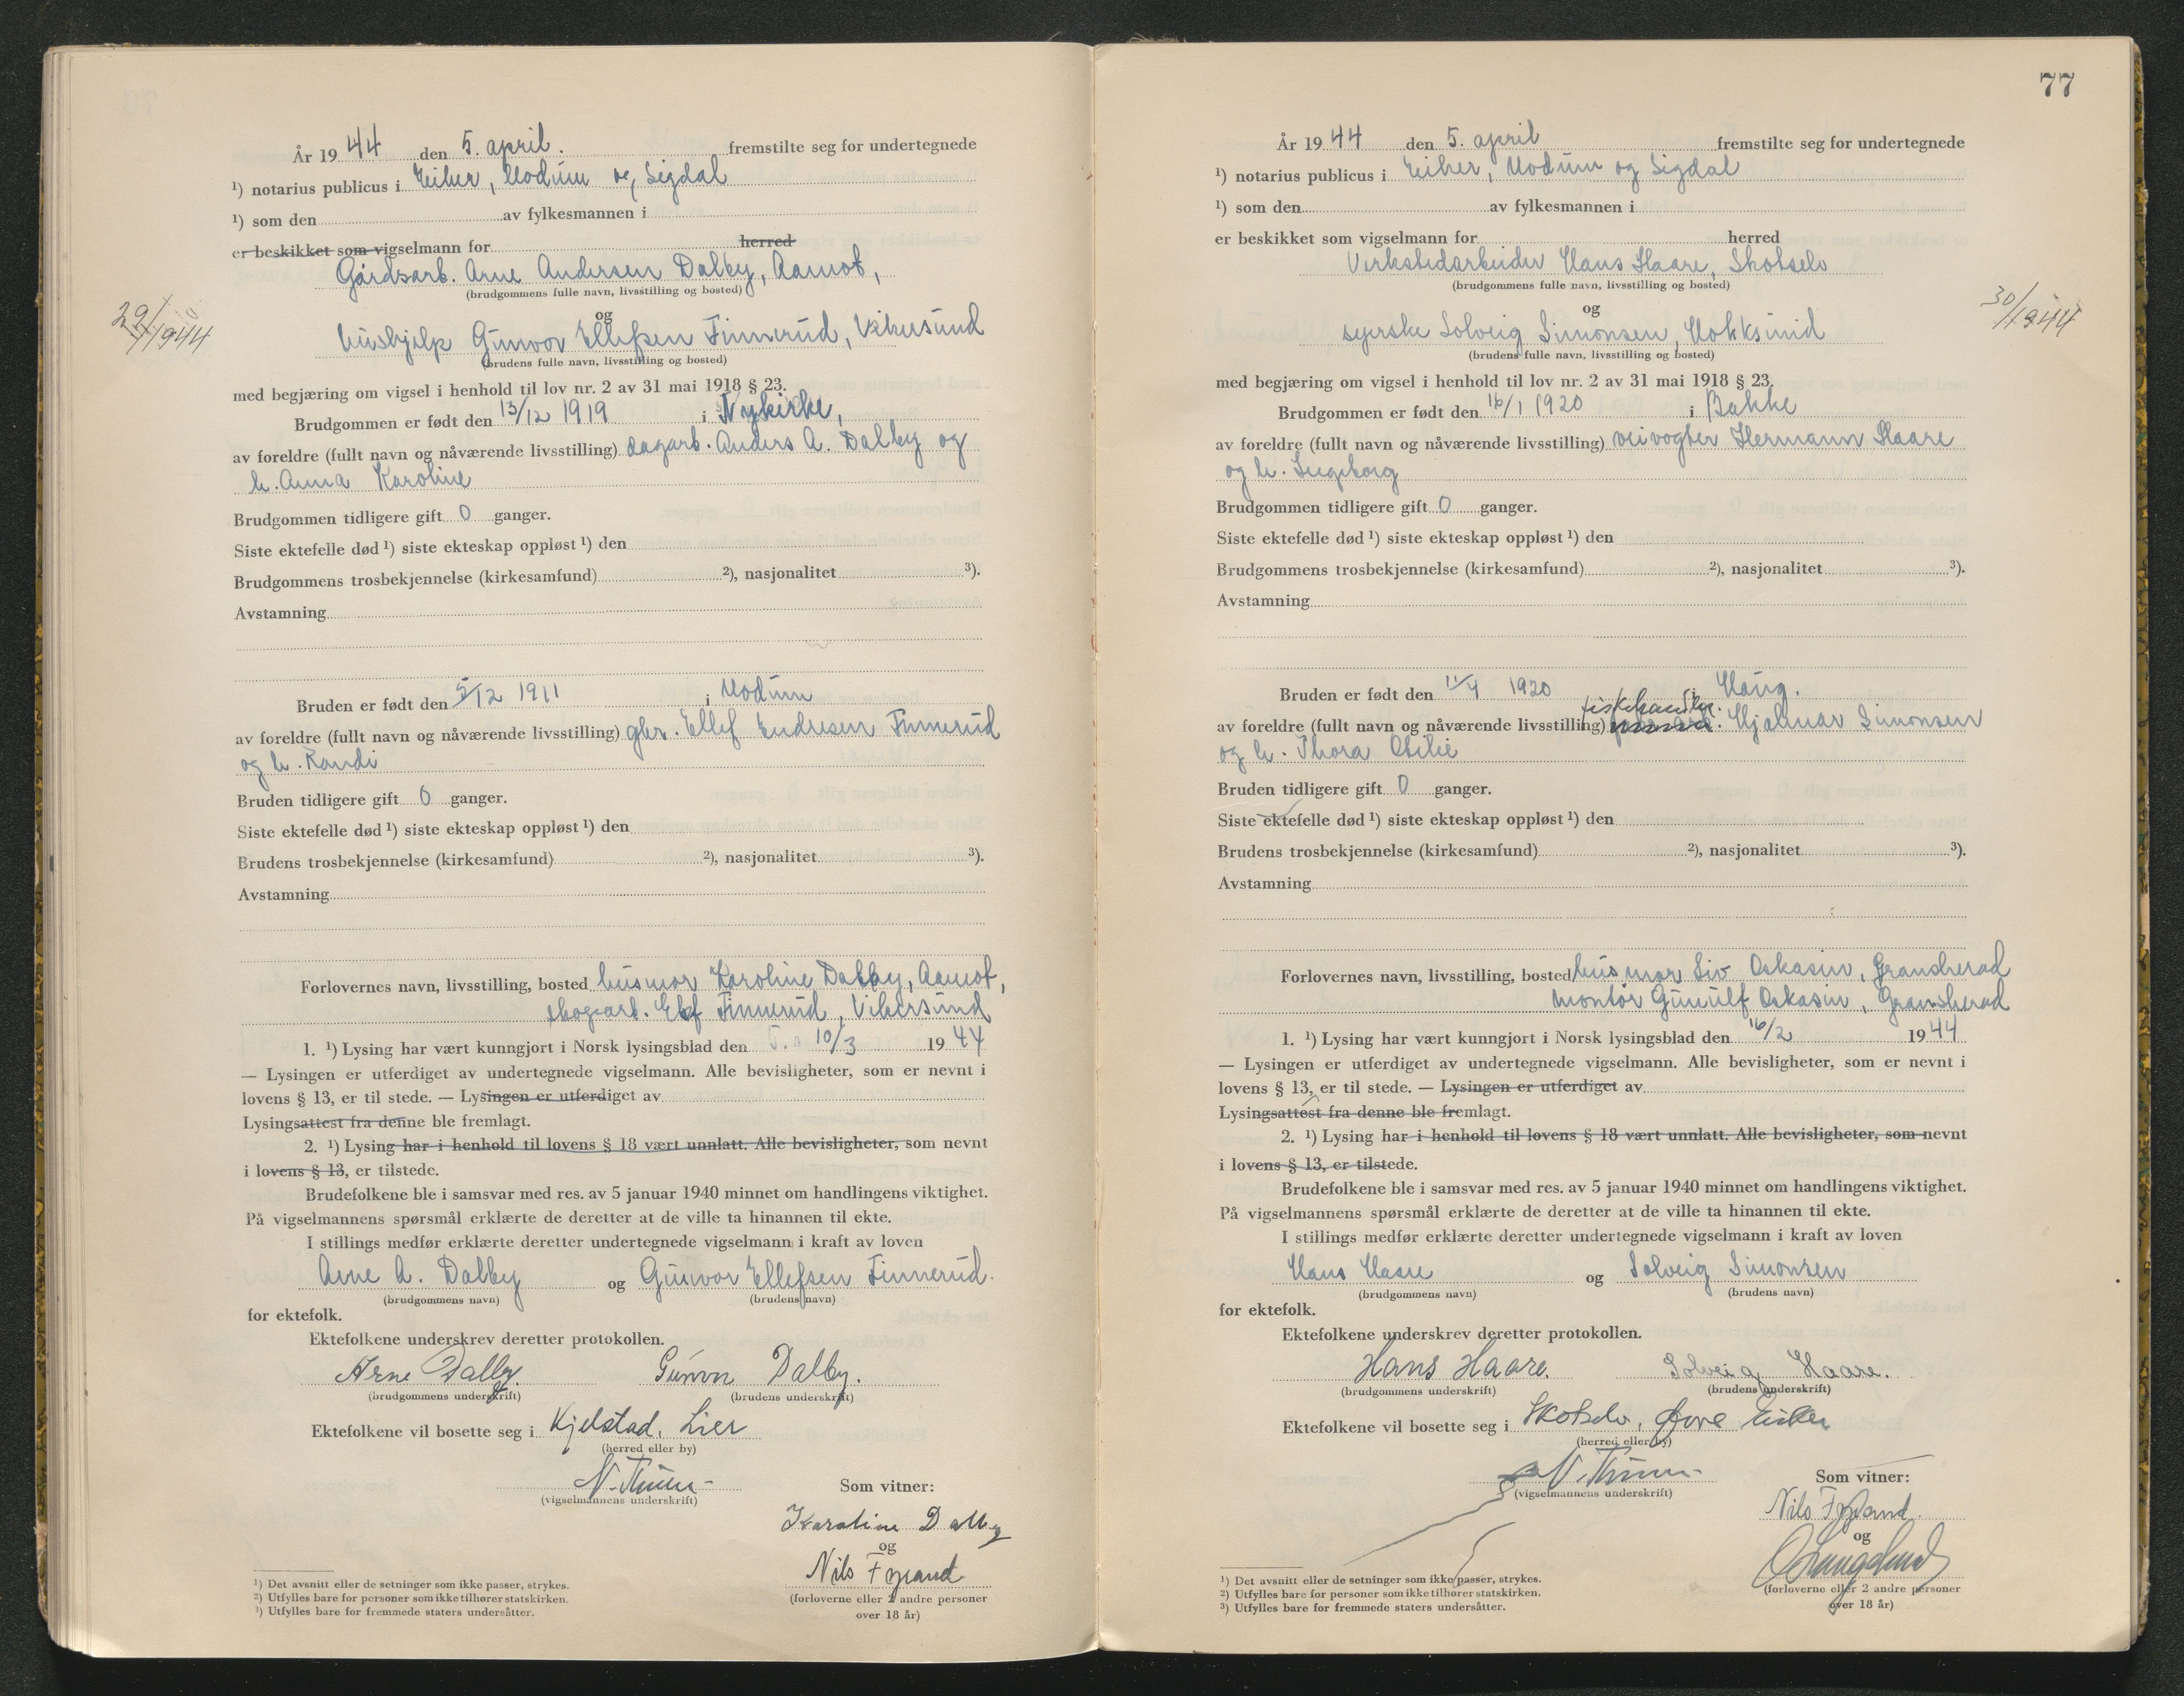 År 19 44 den 5. april. fremstilte seg for undertegnede
¹) notarius publicus i Eiker, Modum og Sigdal
¹) som den av fylkesmannen i
er beskikket som vigselmann for herred
Gårdsarb. Arne Andersen Dalby, Aamot,
(brudgommens fulle navn, livsstilling og bosted)
og
29/1944
hushjelp Gunvor Ellefsen Finnerud, Vikersund
(brudens fulle navn, livsstilling og bosted)
med begjæring om vigsel i henhold til lov nr. 2 av 31 mai 1918 § 23.
Brudgommen er født den 13/12 1919 i Nykirke,
av foreldre (fullt navn og nåværende livsstilling) dagarb. Anders A. Dalby og
h. Anna Karoline
Brudgommen tidligere gift 0 ganger.
Siste ektefelle død ¹) siste ekteskap oppløst ¹) den
Brudgommens trosbekjennelse (kirkesamfund) ²), nasjonalitet ³).
Avstamning
Bruden er født den 5/12 1911 i Modum
av foreldre (fullt navn og nåværende livsstilling) gbr. Ellef Endresen Finnerud
og h. Randi
Bruden tidligere gift 0 ganger.
Siste ektefelle død ¹) siste ekteskap oppløst ¹) den
Brudens trosbekjennelse (kirkesamfund) ²), nasjonalitet ³).
Avstamning
Forlovernes navn, livsstilling, bosted husmor Karoline Dalby, Aamot,
skogsarb. Ellef Finnerud, Vikersund
1. ¹) Lysing har vært kunngjort i Norsk lysingsblad den 10/3 19 44
— Lysingen er utferdiget av undertegnede vigselmann. Alle bevisligheter, som er nevnt i
lovens § 13, er til stede. — Lysingen er utferdiget av
Lysingsattest fra denne ble fremlagt.
2. ¹) Lysing har i henhold til lovens § 18 vært unnlatt. Alle bevisligheter, som nevnt
i lovens § 13, er tilstede.
Brudefolkene ble i samsvar med res. av 5 januar 1940 minnet om handlingens viktighet.
På vigselmannens spørsmål erklærte de deretter at de ville ta hinannen til ekte.
I stillings medfør erklærte deretter undertegnede vigselmann i kraft av loven
Arne A. Dalby og Gunvor Ellefsen Finnerud.
(brudgommens navn) (brudens navn)
for ektefolk.
Ektefolkene underskrev deretter protokollen.
Arne Dalby. Gunvor Dalby.
(brudgommens underskrift) (brudens underskrift)
Ektefolkene vil bosette seg i Kjelstad, Lier
(herred eller by)
(vigselmannens underskrift)
Som vitner:
Karoline Dalby
og
Nils
(forloverne eller 2 andre personer
over 18 år)
¹) Det avsnitt eller de setninger som ikke passer, strykes.
²) Utfylles bare for personer som ikke tilhører statskirken.
³) Utfylles bare for fremmede staters undersåtter.
77
År 19 44 den 5. april fremstilte seg for undertegnede
¹) notarius publicus i Eiker, Modum og Sigdal
¹) som den av fylkesmannen i
er beskikket som vigselmann for herred
Verkstedarbeider Hans Haare, Skotselv
(brudgommens fulle navn, livsstilling og bosted)
og
30/1944
syerske Solveig Simonsen, Hokksund
(brudens fulle navn, livsstilling og bosted)
med begjæring om vigsel i henhold til lov nr. 2 av 31 mai 1918 § 23.
Brudgommen er født den 16/1 1920 i Bakke
av foreldre (fullt navn og nåværende livsstilling) veivogter Hermann Haare
og h. Ingeborg
Brudgommen tidligere gift 0 ganger.
Siste ektefelle død ¹) siste ekteskap oppløst ¹) den
Brudgommens trosbekjennelse (kirkesamfund) ²), nasjonalitet ³).
Avstamning
Bruden er født den 11/4 1920 i Haug.
fiskehandler.
av foreldre (fullt navn og nåværende livsstilling) Hjalmar Simonsen
og h. Thora Otilie
Bruden tidligere gift 0 ganger.
Siste ektefelle død ¹) siste ekteskap oppløst ¹) den
Brudens trosbekjennelse (kirkesamfund) ²), nasjonalitet ³).
Avstamning
Forlovernes navn, livsstilling, bosted husmor Liv Oskasin, Gransherad
montør Gunulf Oskasin, Gransherad
1. ¹) Lysing har vært kunngjort i Norsk lysingsblad den 16/2 19 44
— Lysingen er utferdiget av undertegnede vigselmann. Alle bevisligheter, som er nevnt i
lovens § 13, er til stede. — Lysingen er utferdiget av
Lysingsattest fra denne ble fremlagt.
2. ¹) Lysing har i henhold til lovens § 18 vært unnlatt. Alle bevisligheter, som nevnt
i lovens § 13, er tilstede.
Brudefolkene ble i samsvar med res. av 5 januar 1940 minnet om handlingens viktighet.
På vigselmannens spørsmål erklærte de deretter at de ville ta hinannen til ekte.
I stillings medfør erklærte deretter undertegnede vigselmann i kraft av loven
Hans Haare og Solveig Simonsen
(brudgommens navn) (brudens navn)
for ektefolk.
Ektefolkene underskrev deretter protokollen.
Hans Haare. Solveig Haare.
(brudgommens underskrift) (brudens underskrift)
Ektefolkene vil bosette seg i Skotselv, Øvre Eiker
(herred eller by)
(vigselmannens underskrift)
Som vitner:
Nils
og
(forloverne eller 2 andre personer
over 18 år)
¹) Det avsnitt eller de setninger som ikke passer, strykes.
²) Utfylles bare for personer som ikke tilhører statskirken.
³) Utfylles bare for fremmede staters undersåtter.